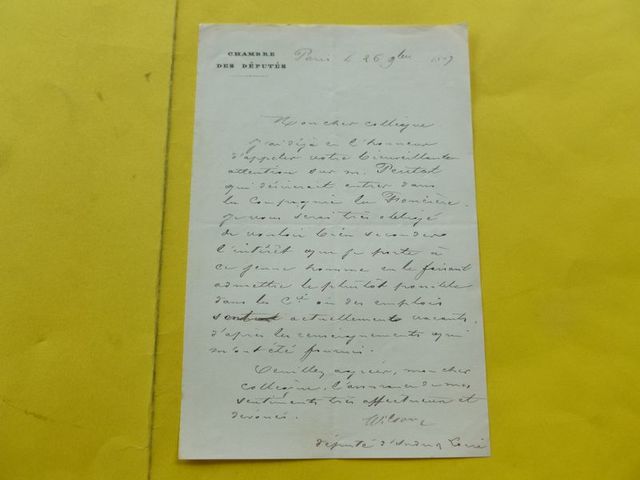 CHAMBRE
DES DÉPUTÉS
Paris le 26 9bre
Mon cher collègue
J'ai déjà eu l'honneur
d'appeler votre bienveillante
attention sur M.
qui désirerait entrer dans
la Compagnie la Foncière.
Je vous serai très obligé
de vouloir bien seconder
l'intérêt que je porte à
ce jeune homme en le faisant
admettre le plutôt possible
dans les Cie où des emplois
sont actuellement vacants,
d'après les renseignements qui
m'ont été fournis.
Veuillez agréer, mon cher
collègue, l'assurance de mes
sentiments très affectueux et
dévoués.
Wilson
député d'Indre & Loire